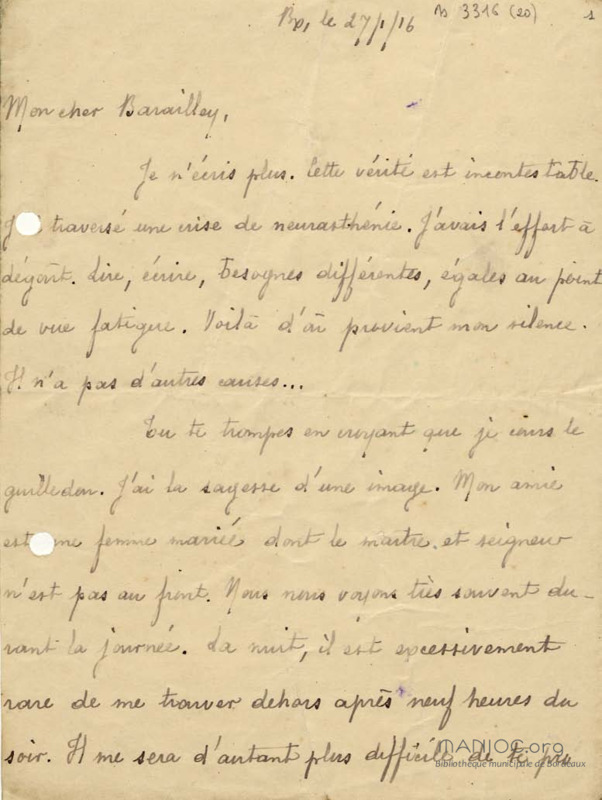 Bx, le 27/1/16 Ms 3316 (20) 1
Mon cher Barailley,
Je n'écris plus. Cette vérité est incontestable.
J' traversé une crise de neurasthénie. J'avais l'effort à
dégoût. Lire, écrire, besognes différentes, égales au point
de vue fatigue. Voilà d'où provient mon silence.
Il n'a pas d'autres causes...
Tu te trompes en croyant que je cours le
guilledou. J'ai la sagesse d'une image. Mon amie
est me femme mariée dont le maître et seigneur
n'est pas au front. Nous nous voyons très souvent du-
rant la journée. La nuit, il est excessivement
rare de me trouver dehors après neuf heures du
soir. Il me sera d'autant plus difficile de te
MANIOC.org
Bibliothèque municipale de Bordeaux